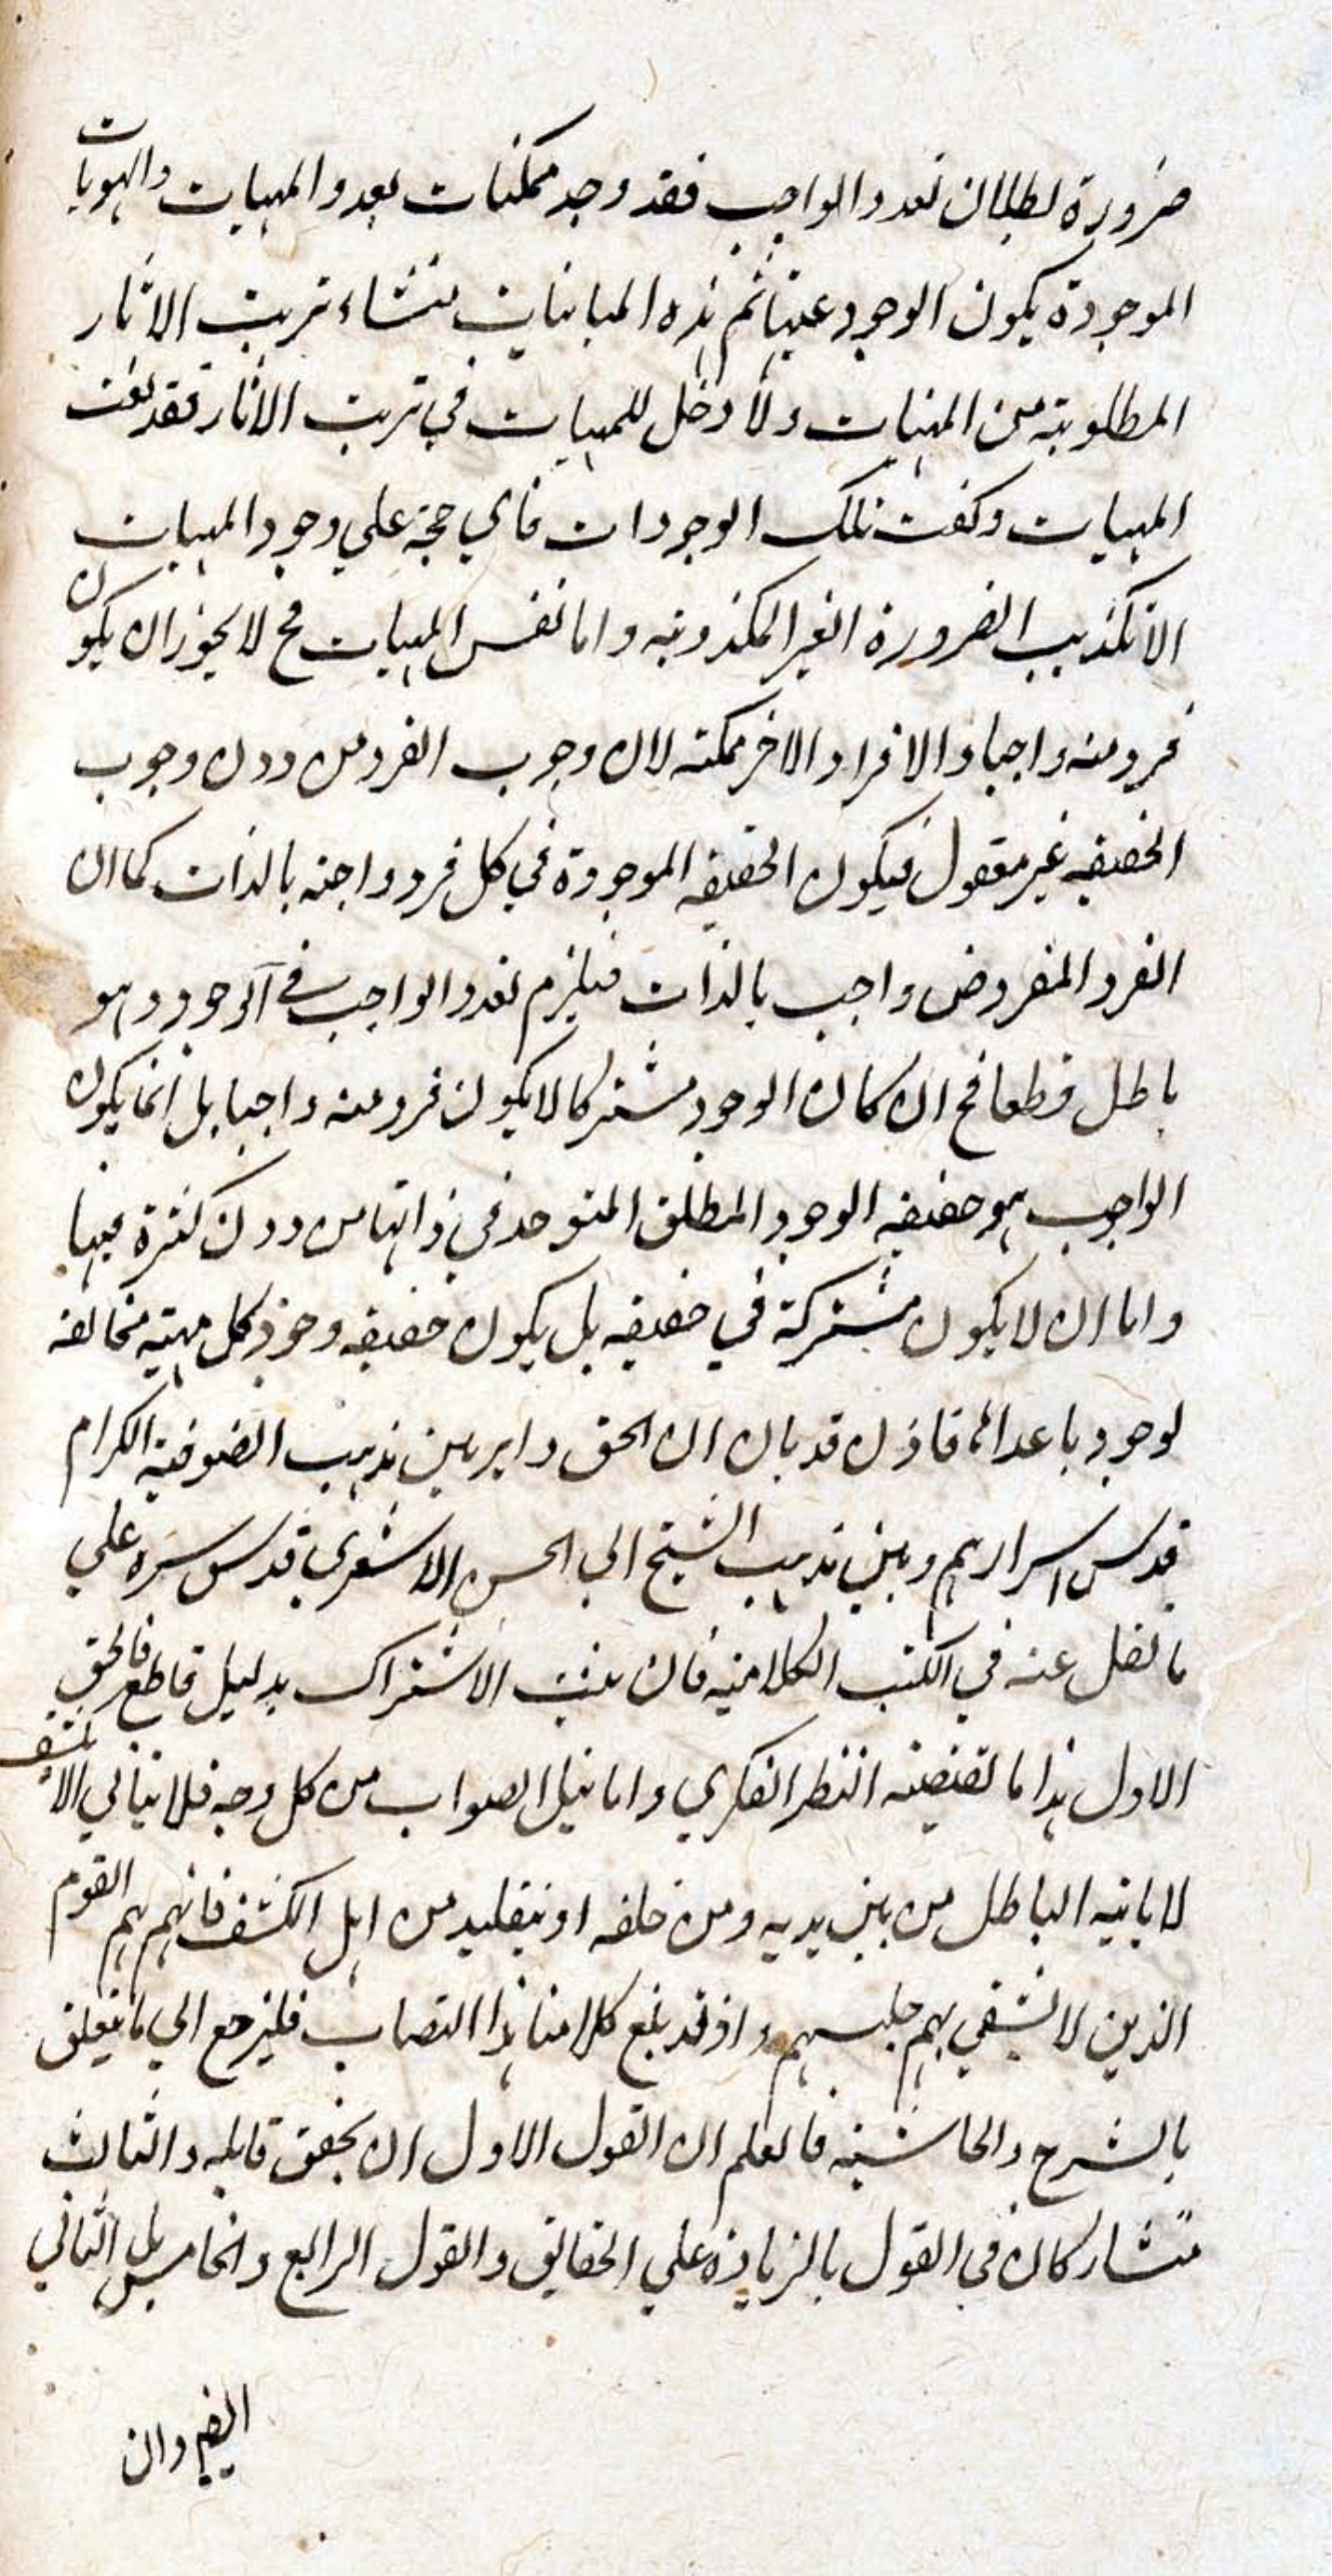 ضرورة لبطلان تعدد الواجب فقد وجد ممكنات بعدد المهيات والهويات
الموجودة يكون الوجود عينها ثم هذه المباينات منشاء ترتب الاثار
المطلوبة من المهيات ولا دخل للمهيات في ترتب الاثار فقد لغت
المهيات وكفت تلك الوجودات فاي حجة علي وجود المهيات
الا تكذيب الضرورة الغير المكذوبة واما نفس المهيات فح لا يجوز ان يكون
فرد منه واجبا والافراد الاخر ممكنة لان وجوب الفرد من دون وجوب
الحقيقه غير معقول فيكون الحقيقه الموجودة في كل فرد واجبه بالذات كما ان
الفرد المفروض واجب بالذات فيلزم تعدد الواجب في الوجود وهو
باطل قطعا فح ان كان الوجود مشتركا لا يكون فرد منه واجبا بل انما يكون
الواجب هو حقيقه الوجود المطلق المتوحد في ذاتها من دون كثرة فيها
واما ان لا يكون مشتركة في حقيقه بل يكون حقيقه وجود كل مهية مخالفه
لوجود ما عداها فاذن قد بان ان الحق داير بين مذهب الصوفية الكرام
قدس اسرارهم وبين مذهب الشيخ ابي الحسن الاشعري قدس سره علي
ما نقل عنه في الكتب الكلامية فان ثبت الاشتراك بدليل قاطع فالحق
الاول هذا ما تقتضيه النظر الفكري واما نيل الصواب من كل وجه فلا يتاتي الا بكشف
لا ياتيه الباطل من بين يديه ومن خلفه او بتقليد من اهل الكشف فانهم هم القوم
الذين لا يشقي بهم جليسهم واذ قد بلغ كلامنا هذا النصاب فليرجع الي ما يتعلق
بالشرح والحاشية فاعلم ان القول الاول ان تحقق قايله والثالث
متشاركان في القول بالزيادة علي الحقايق والقول الرابع والخامس بل الثاني
ايضم وان